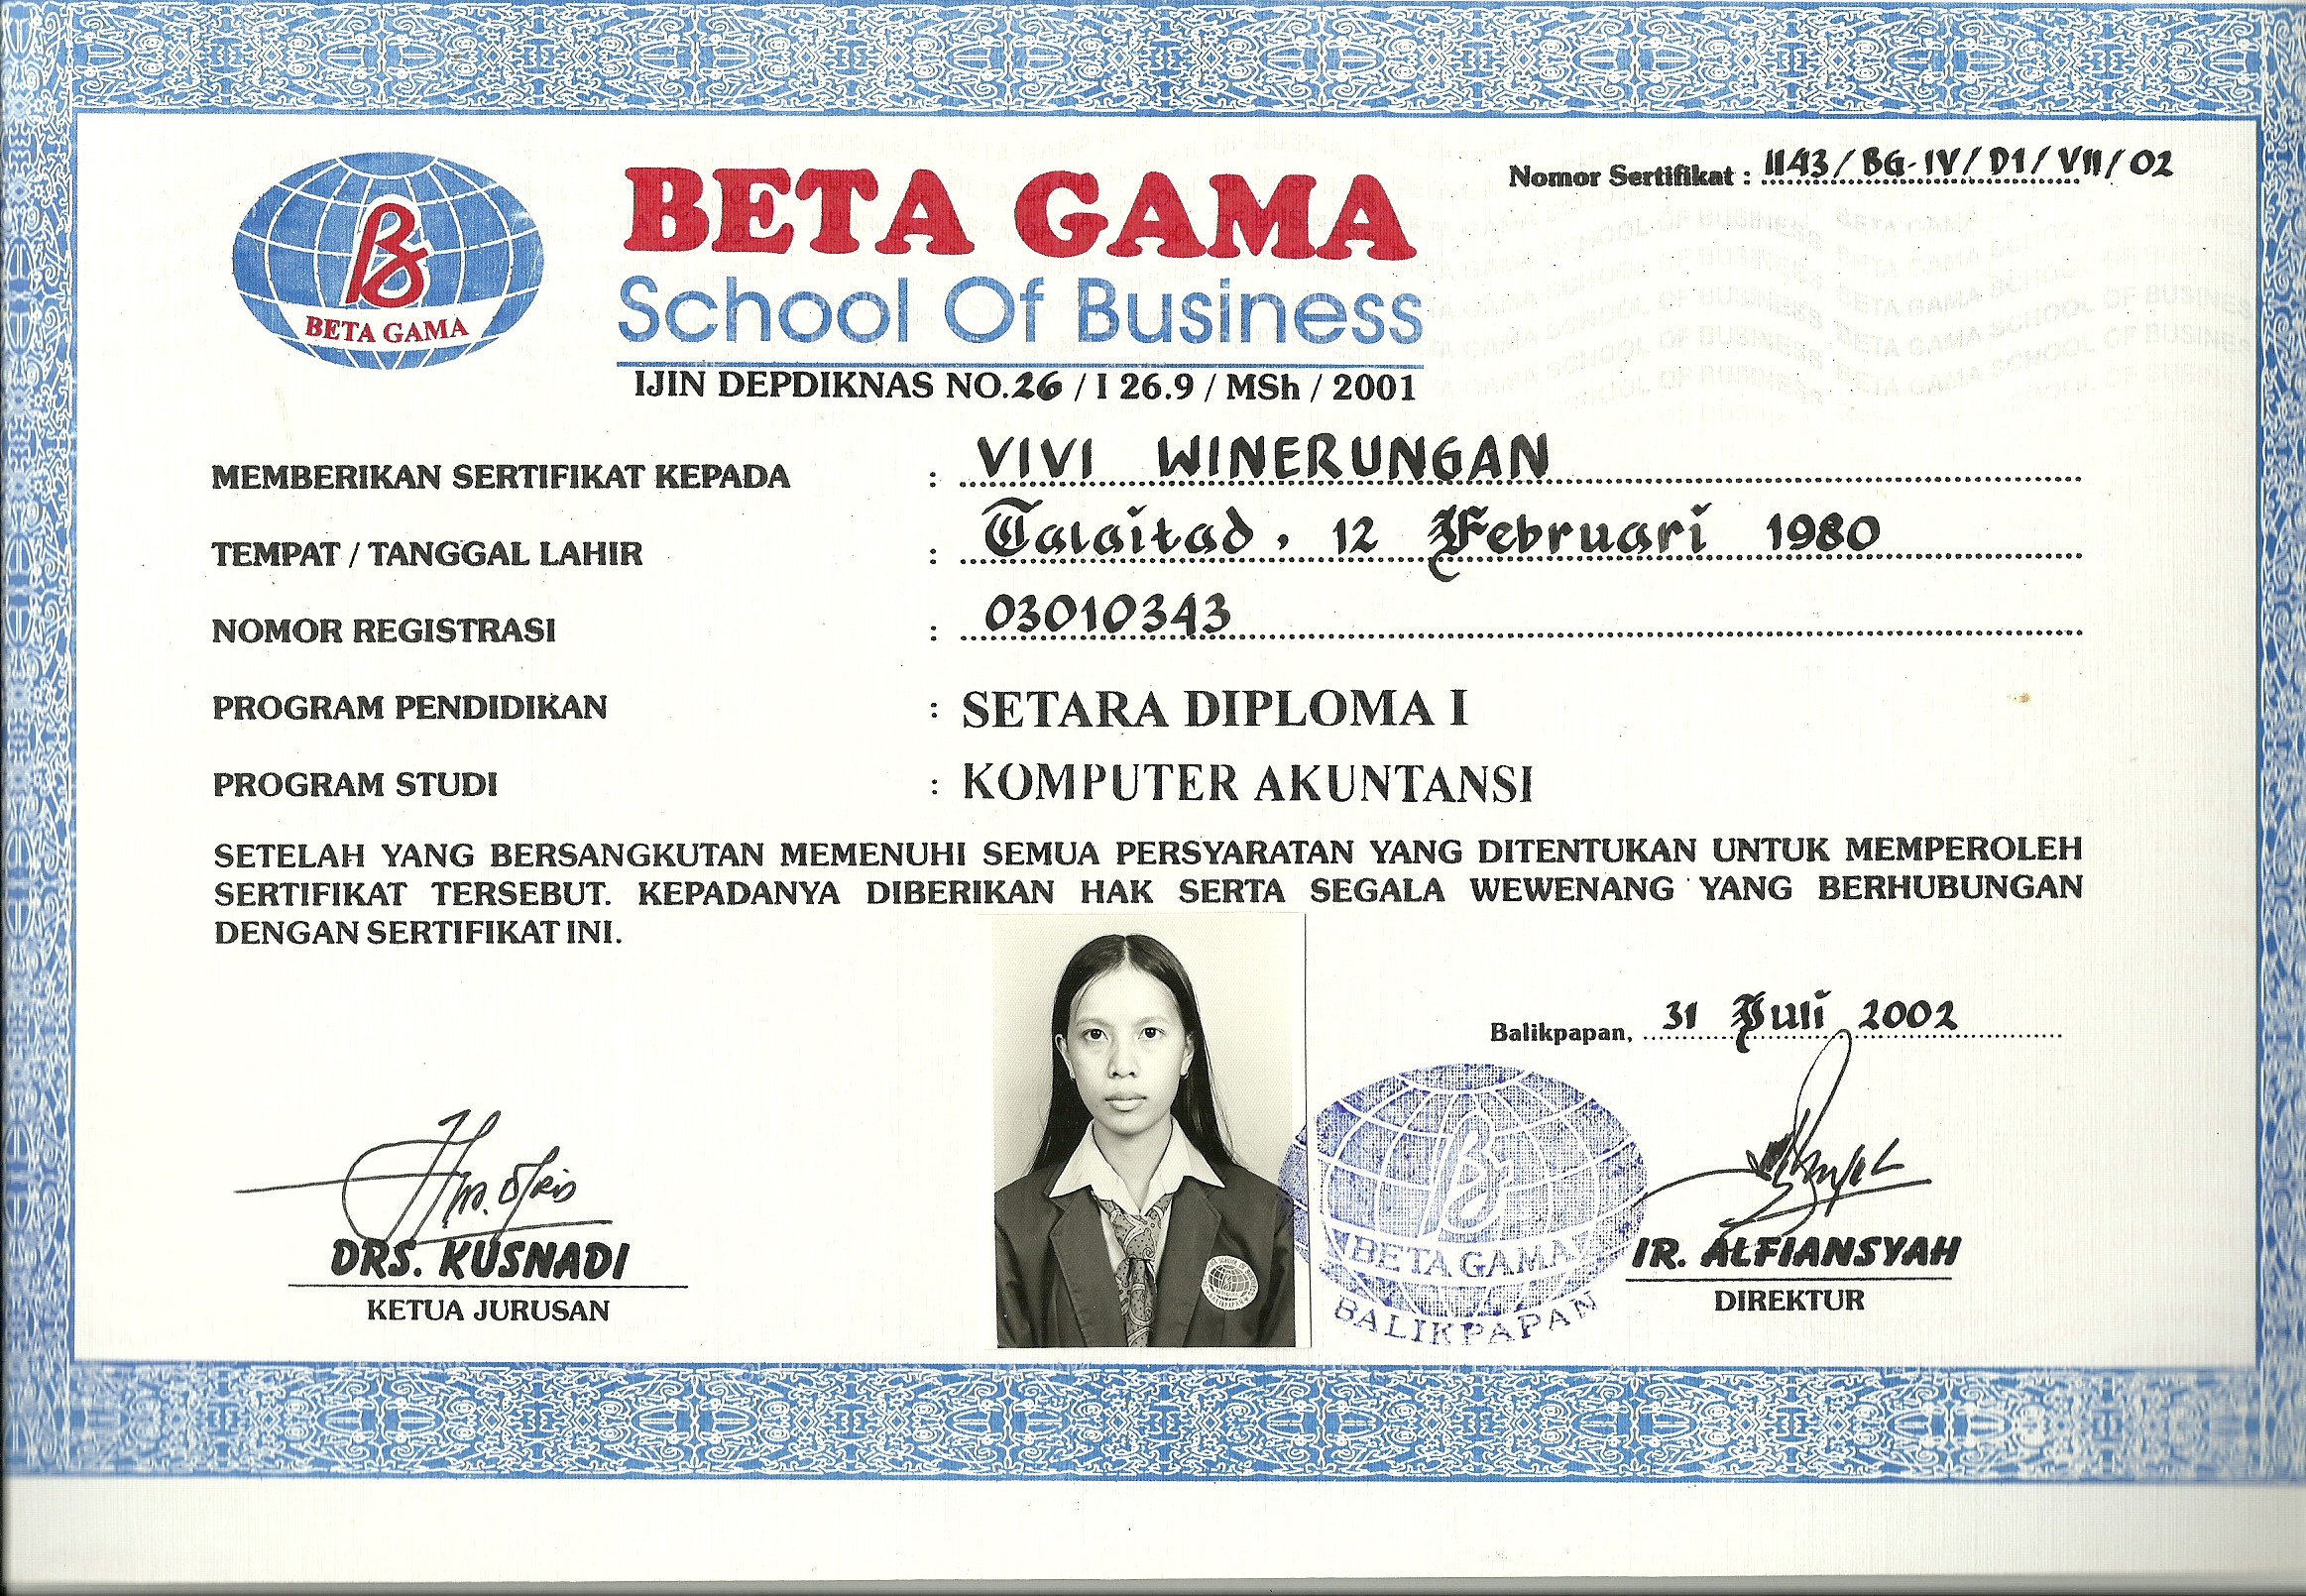 Nomor Sertifikat : 1143 / BG-IV / D1 / VII / 02
BETA GAMA
BETA GAMA
School Of Business
IJIN DEPDIKNAS NO.26 / I 26.9 / MSh / 2001
MEMBERIKAN SERTIFIKAT KEPADA : VIVI WINERUNGAN
TEMPAT / TANGGAL LAHIR : Talaitad, 12 Februari 1980
NOMOR REGISTRASI : 03010343
PROGRAM PENDIDIKAN : SETARA DIPLOMA I
PROGRAM STUDI : KOMPUTER AKUNTANSI
SETELAH YANG BERSANGKUTAN MEMENUHI SEMUA PERSYARATAN YANG DITENTUKAN UNTUK MEMPEROLEH
SERTIFIKAT TERSEBUT. KEPADANYA DIBERIKAN HAK SERTA SEGALA WEWENANG YANG BERHUBUNGAN
DENGAN SERTIFIKAT INI.
Balikpapan, 31 Juli 2002
BETA GAMA
BALIKPAPAN
DRS. KUSNADI
KETUA JURUSAN
IR. ALFIANSYAH
DIREKTUR